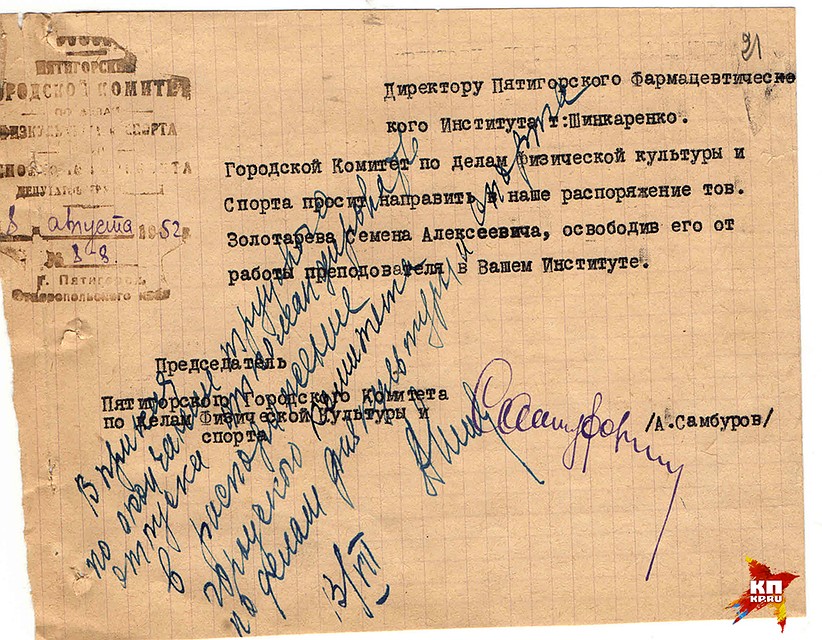 21
ПЯТИГОРСКИЙ
ГОРОДСКОЙ КОМИТЕТ
ПО ДЕЛАМ
ФИЗКУЛЬТУРЫ И СПОРТА
ДЕПУТАТОВ
8 августа 1952
№ 88
г. Пятигорск,
Ставропольского края
Директору Пятигорского Фармацевтическо
кого Института т:Шинкаренко.
Городской Комитет по делам физической культуры и
Спорта просит направить в наше распоряжение тов.
Золотарева Семена Алексеевича, освободив его от
работы преподователя в Вашем Институте.
Председатель
Пятигорского Городского Комитета
по делам Физической Культуры и
спорта
/А.Самбуров/
В приказ
по окончании трудового
отпуска откомандировать
в распоряжение
городского комитета
по делам физкультуры и спорта
13/VIII
КП
KP.RU